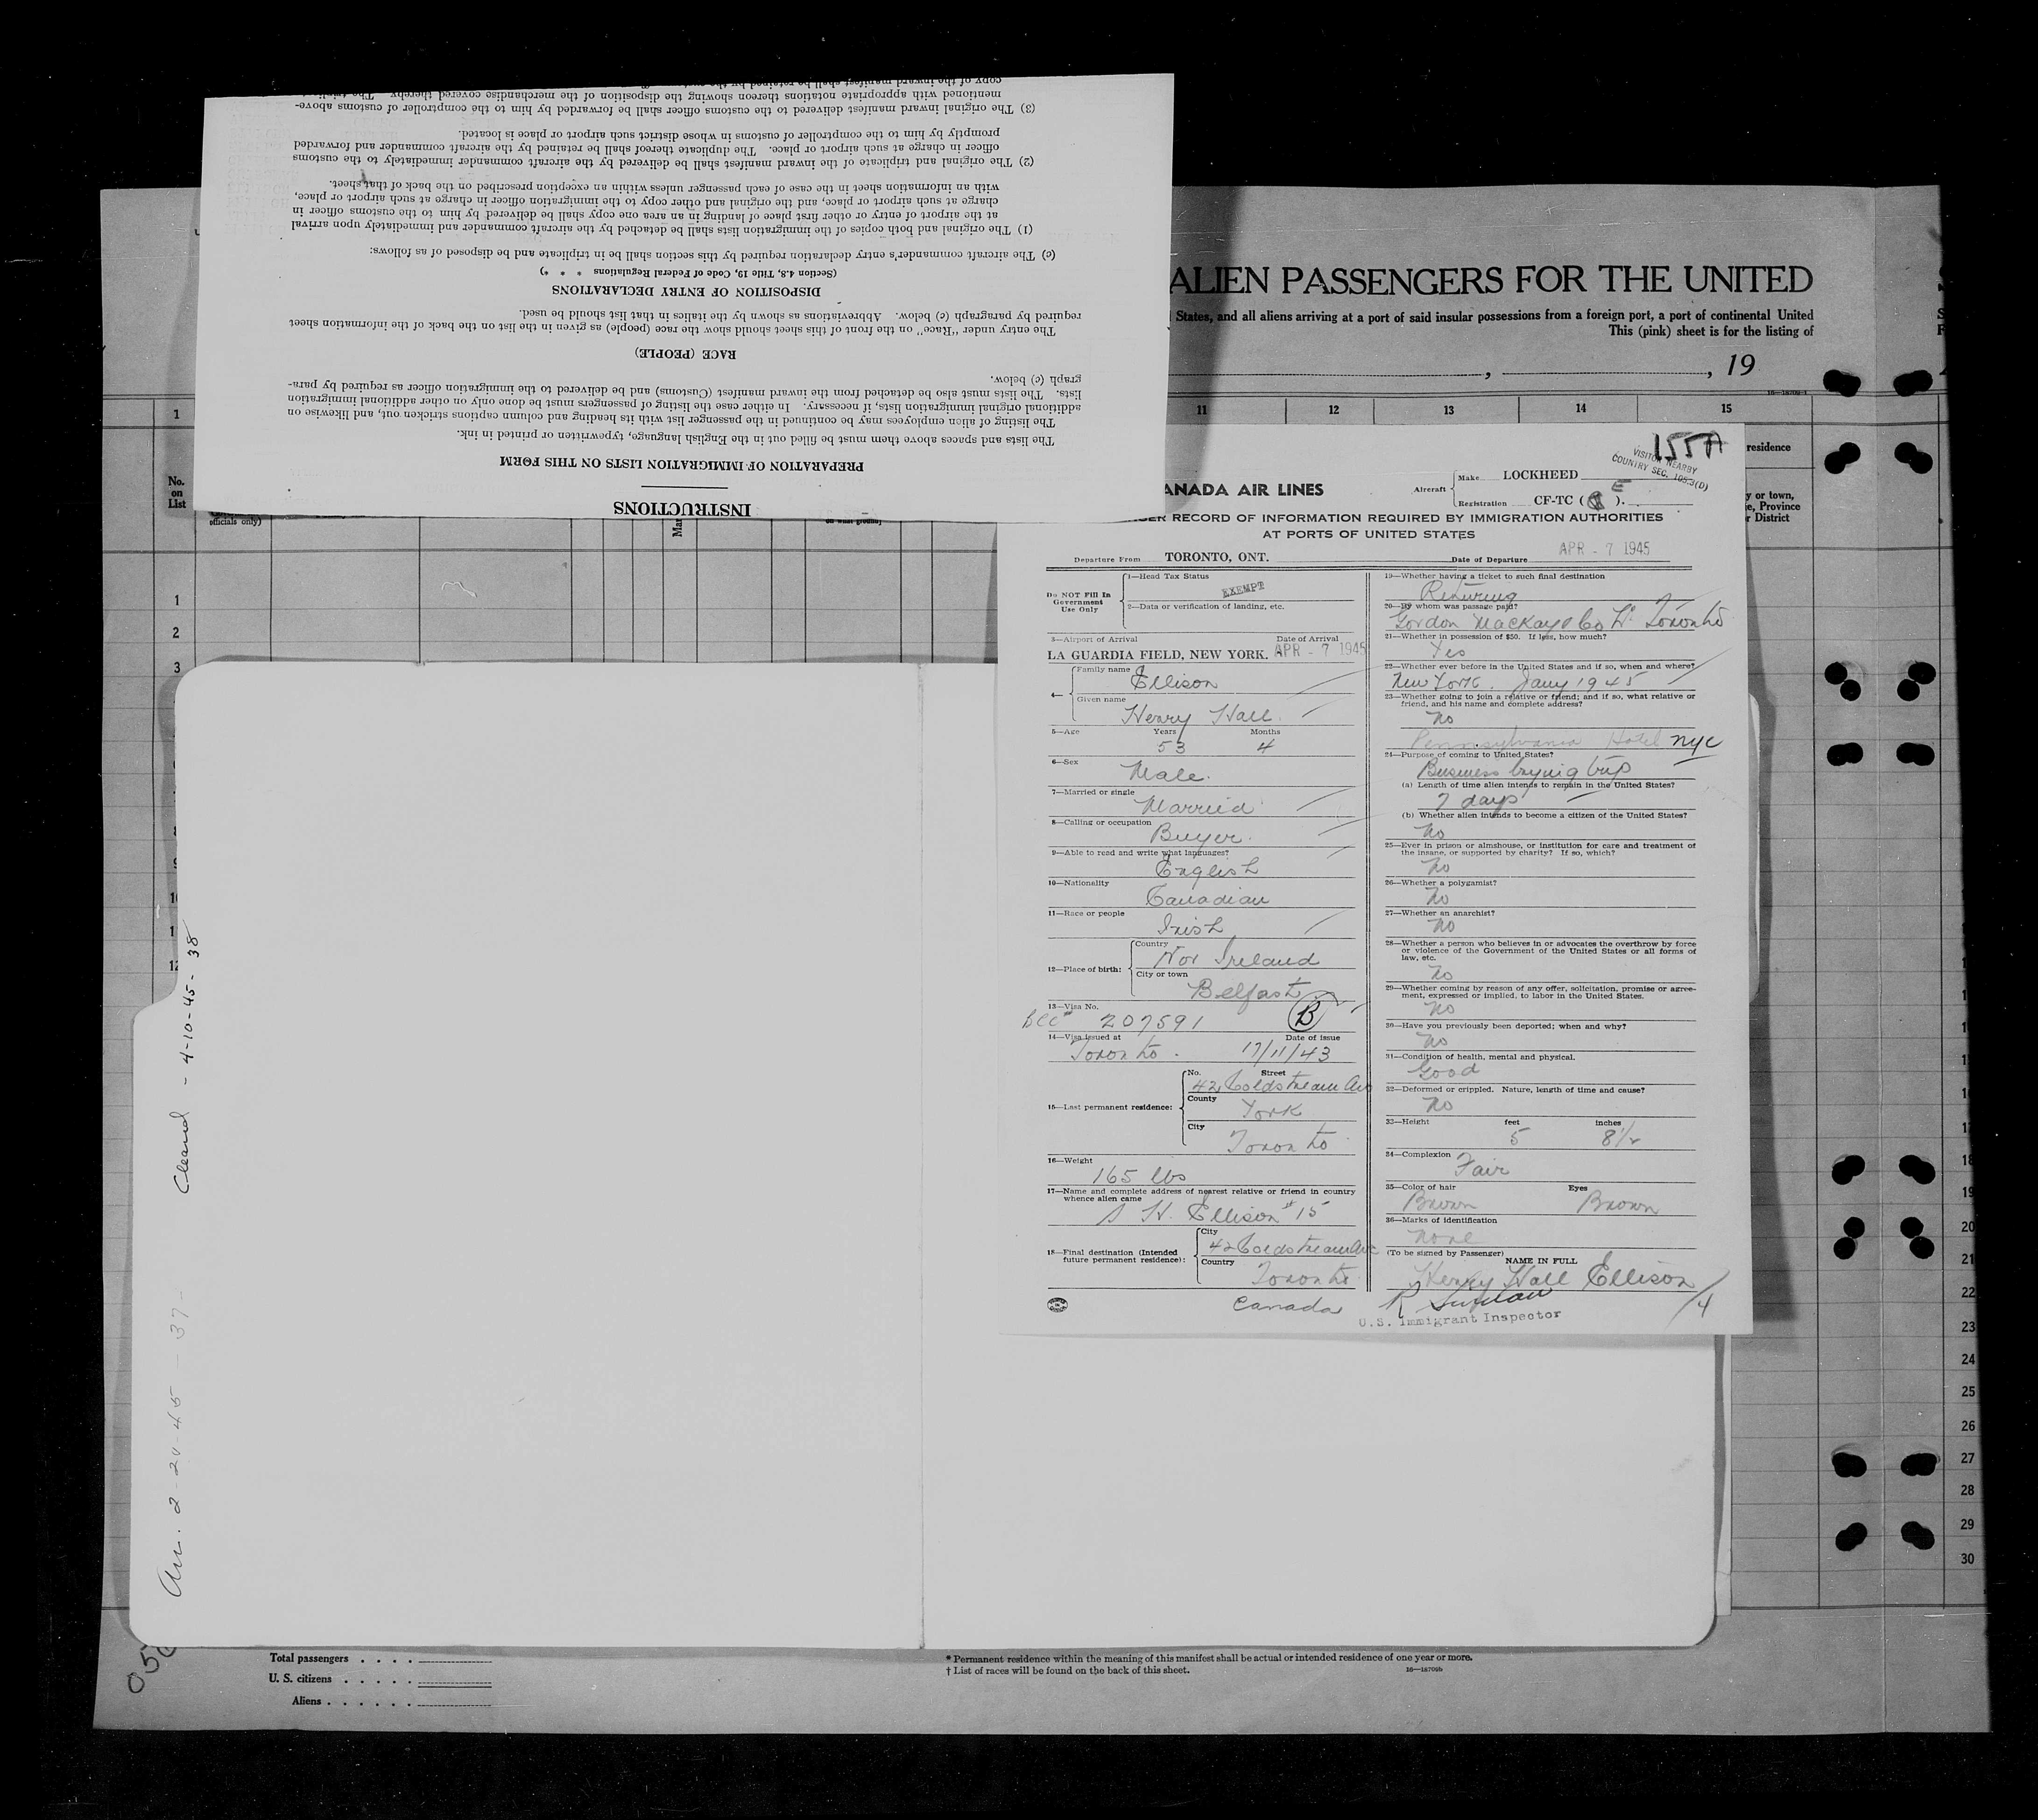 INSTRUCTIONS
PREPARATION OF IMMIGRATION LISTS ON THIS FORM
The lists and spaces above them must be filled out in the English language, typewritten or printed in ink.
The listing of alien employees may be continued in the passenger list with its heading and column captions stricken out, and likewise on
additional original immigration lists, if necessary. In either case the listing of passengers must be done only on other additional immigration
lists. The lists must also be detached from the inward manifest (Customs) and be delivered to the immigration officer as required by para-
graph (c) below.
RACE (PEOPLE)
The entry under "Race" on the front of this sheet should show the race (people) as given in the list on the back of the information sheet
required by paragraph (c) below. Abbreviations as shown by the italics in that list should be used.
DISPOSITION OF ENTRY DECLARATIONS
(Section 4.8, Title 19, Code of Federal Regulations * * *)
(c) The aircraft commander's entry declaration required by this section shall be in triplicate and be disposed of as follows:
(1) The original and both copies of the immigration lists shall be detached by the aircraft commander and immediately upon arrival
at the airport of entry or other first place of landing in an area one copy shall be delivered by him to the customs officer in
charge at such airport or place, and the original and other copy to the immigration officer in charge at such airport or place,
with an information sheet in the case of each passenger unless within an exception prescribed on the back of that sheet.
(2) The original and triplicate of the inward manifest shall be delivered by the aircraft commander immediately to the customs
officer in charge at such airport or place. The duplicate thereof shall be retained by the aircraft commander and forwarded
promptly by him to the comptroller of customs in whose district such airport or place is located.
(3) The original inward manifest delivered to the customs officer shall be forwarded by him to the comptroller of customs above-
mentioned with appropriate notations thereon showing the disposition of the merchandise covered thereby. The
copy of the inward manifest shall be retained by the
ALIEN PASSENGERS FOR THE UNITED
States, and all aliens arriving at a port of said insular possessions from a foreign port, a port of continental United
This (pink) sheet is for the listing of
, , 19
16—18709-1
1 11 12 13 14 15
No.
on
List
officials only)
residence
y or town,
e, Province
r District
155A
VISITOR NEARBY
COUNTRY SEC. 105.3(D)
ANADA AIR LINES
Aircraft
Make LOCKHEED
Registration CF-TC ( E ).
ER RECORD OF INFORMATION REQUIRED BY IMMIGRATION AUTHORITIES
AT PORTS OF UNITED STATES
Departure From TORONTO, ONT. Date of Departure APR - 7 1945
Do NOT Fill In
Government
Use Only
1—Head Tax Status
EXEMPT
2—Data or verification of landing, etc.
3—Airport of Arrival Date of Arrival
LA GUARDIA FIELD, NEW YORK. APR - 7 1945
4—
Family name
Ellison
Given name
Henry Hall
5—Age Years Months
53 4
6—Sex
Male.
7—Married or single
Married
8—Calling or occupation
Buyer.
9—Able to read and write what languages?
English
10—Nationality
Canadian
11—Race or people
Irish
12—Place of birth:
Country
Nor Ireland
City or town
Belfast
13—Visa No.
BCC# 207591 B
14—Visa issued at Date of issue
Toronto. 17/11/43
15—Last permanent residence:
No. Street
42 Coldstream Ave
County
York
City
Toronto
16—Weight
165 lbs
17—Name and complete address of nearest relative or friend in country
whence alien came
H. Ellison #15
18—Final destination (Intended
future permanent residence):
City
42 Coldstream Ave
Country
Toronto
Canada
19—Whether having a ticket to such final destination
Returing
20—By whom was passage paid?
Gordon Mackay & Co Lt Toronto
21—Whether in possession of $50. If less, how much?
Yes
22—Whether ever before in the United States and if so, when and where?
New York. Jany 1945
23—Whether going to join a relative or friend; and if so, what relative or
friend, and his name and complete address?
No
Pennsylvania Hotel nyc
24—Purpose of coming to United States?
Business buying trip
(a) Length of time alien intends to remain in the United States?
7 days
(b) Whether alien intends to become a citizen of the United States?
No
25—Ever in prison or almshouse, or institution for care and treatment of
the insane, or supported by charity? If so, which?
No
26—Whether a polygamist?
No
27—Whether an anarchist?
No
28—Whether a person who believes in or advocates the overthrow by force
or violence of the Government of the United States or all forms of
law, etc.
No
29—Whether coming by reason of any offer, solicitation, promise or agree-
ment, expressed or implied, to labor in the United States.
No
30—Have you previously been deported; when and why?
No
31—Condition of health, mental and physical.
Good
32—Deformed or crippled. Nature, length of time and cause?
No
33—Height feet inches
5 8½
34—Complexion
Fair
35—Color of hair Eyes
Brown Brown
36—Marks of identification
None
(To be signed by Passenger)
NAME IN FULL
Henry Hall Ellison
/4
U.S. Immigrant Inspector
1
2
3
18
19
20
21
22
23
24
25
26
27
28
29
30
Cleared - 4-10-45- 38
Arr. 2-20-45 - 37-
Total passengers . . . .
U. S. citizens . . . . .
Aliens . . . . . .
* Permanent residence within the meaning of this manifest shall be actual or intended residence of one year or more.
† List of races will be found on the back of this sheet.
16—18709b